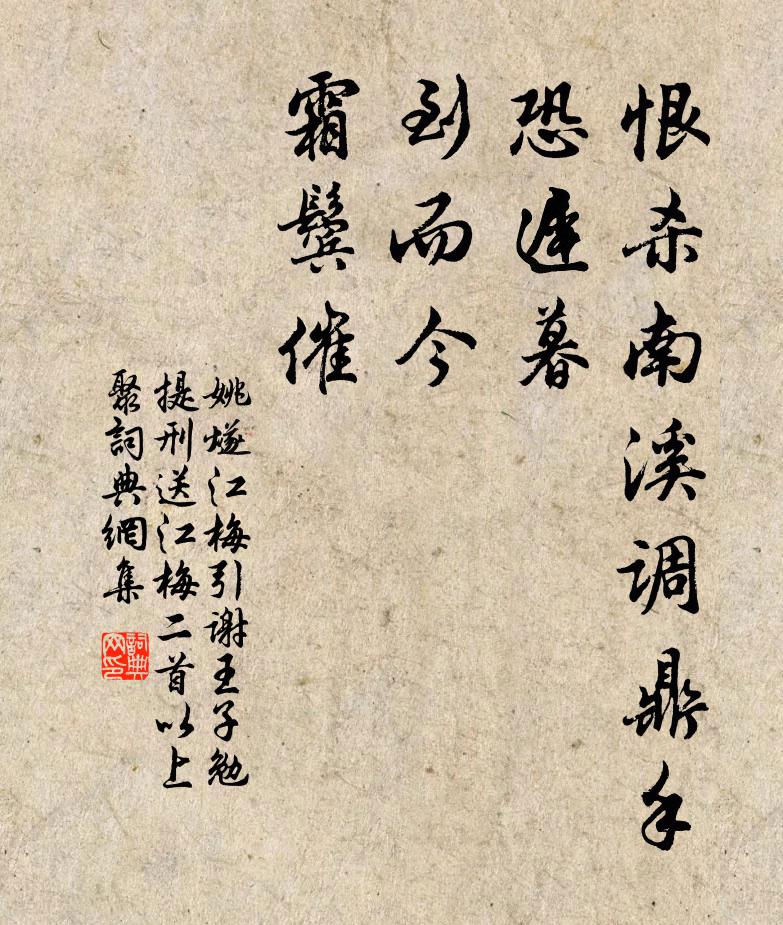 恨杀南溪调鼎手
恐遲暮
到而今
霜鬓催
姚燧江梅引谢王子勉
提刑送江梅二首以上
聚詞典網集
詞典網印